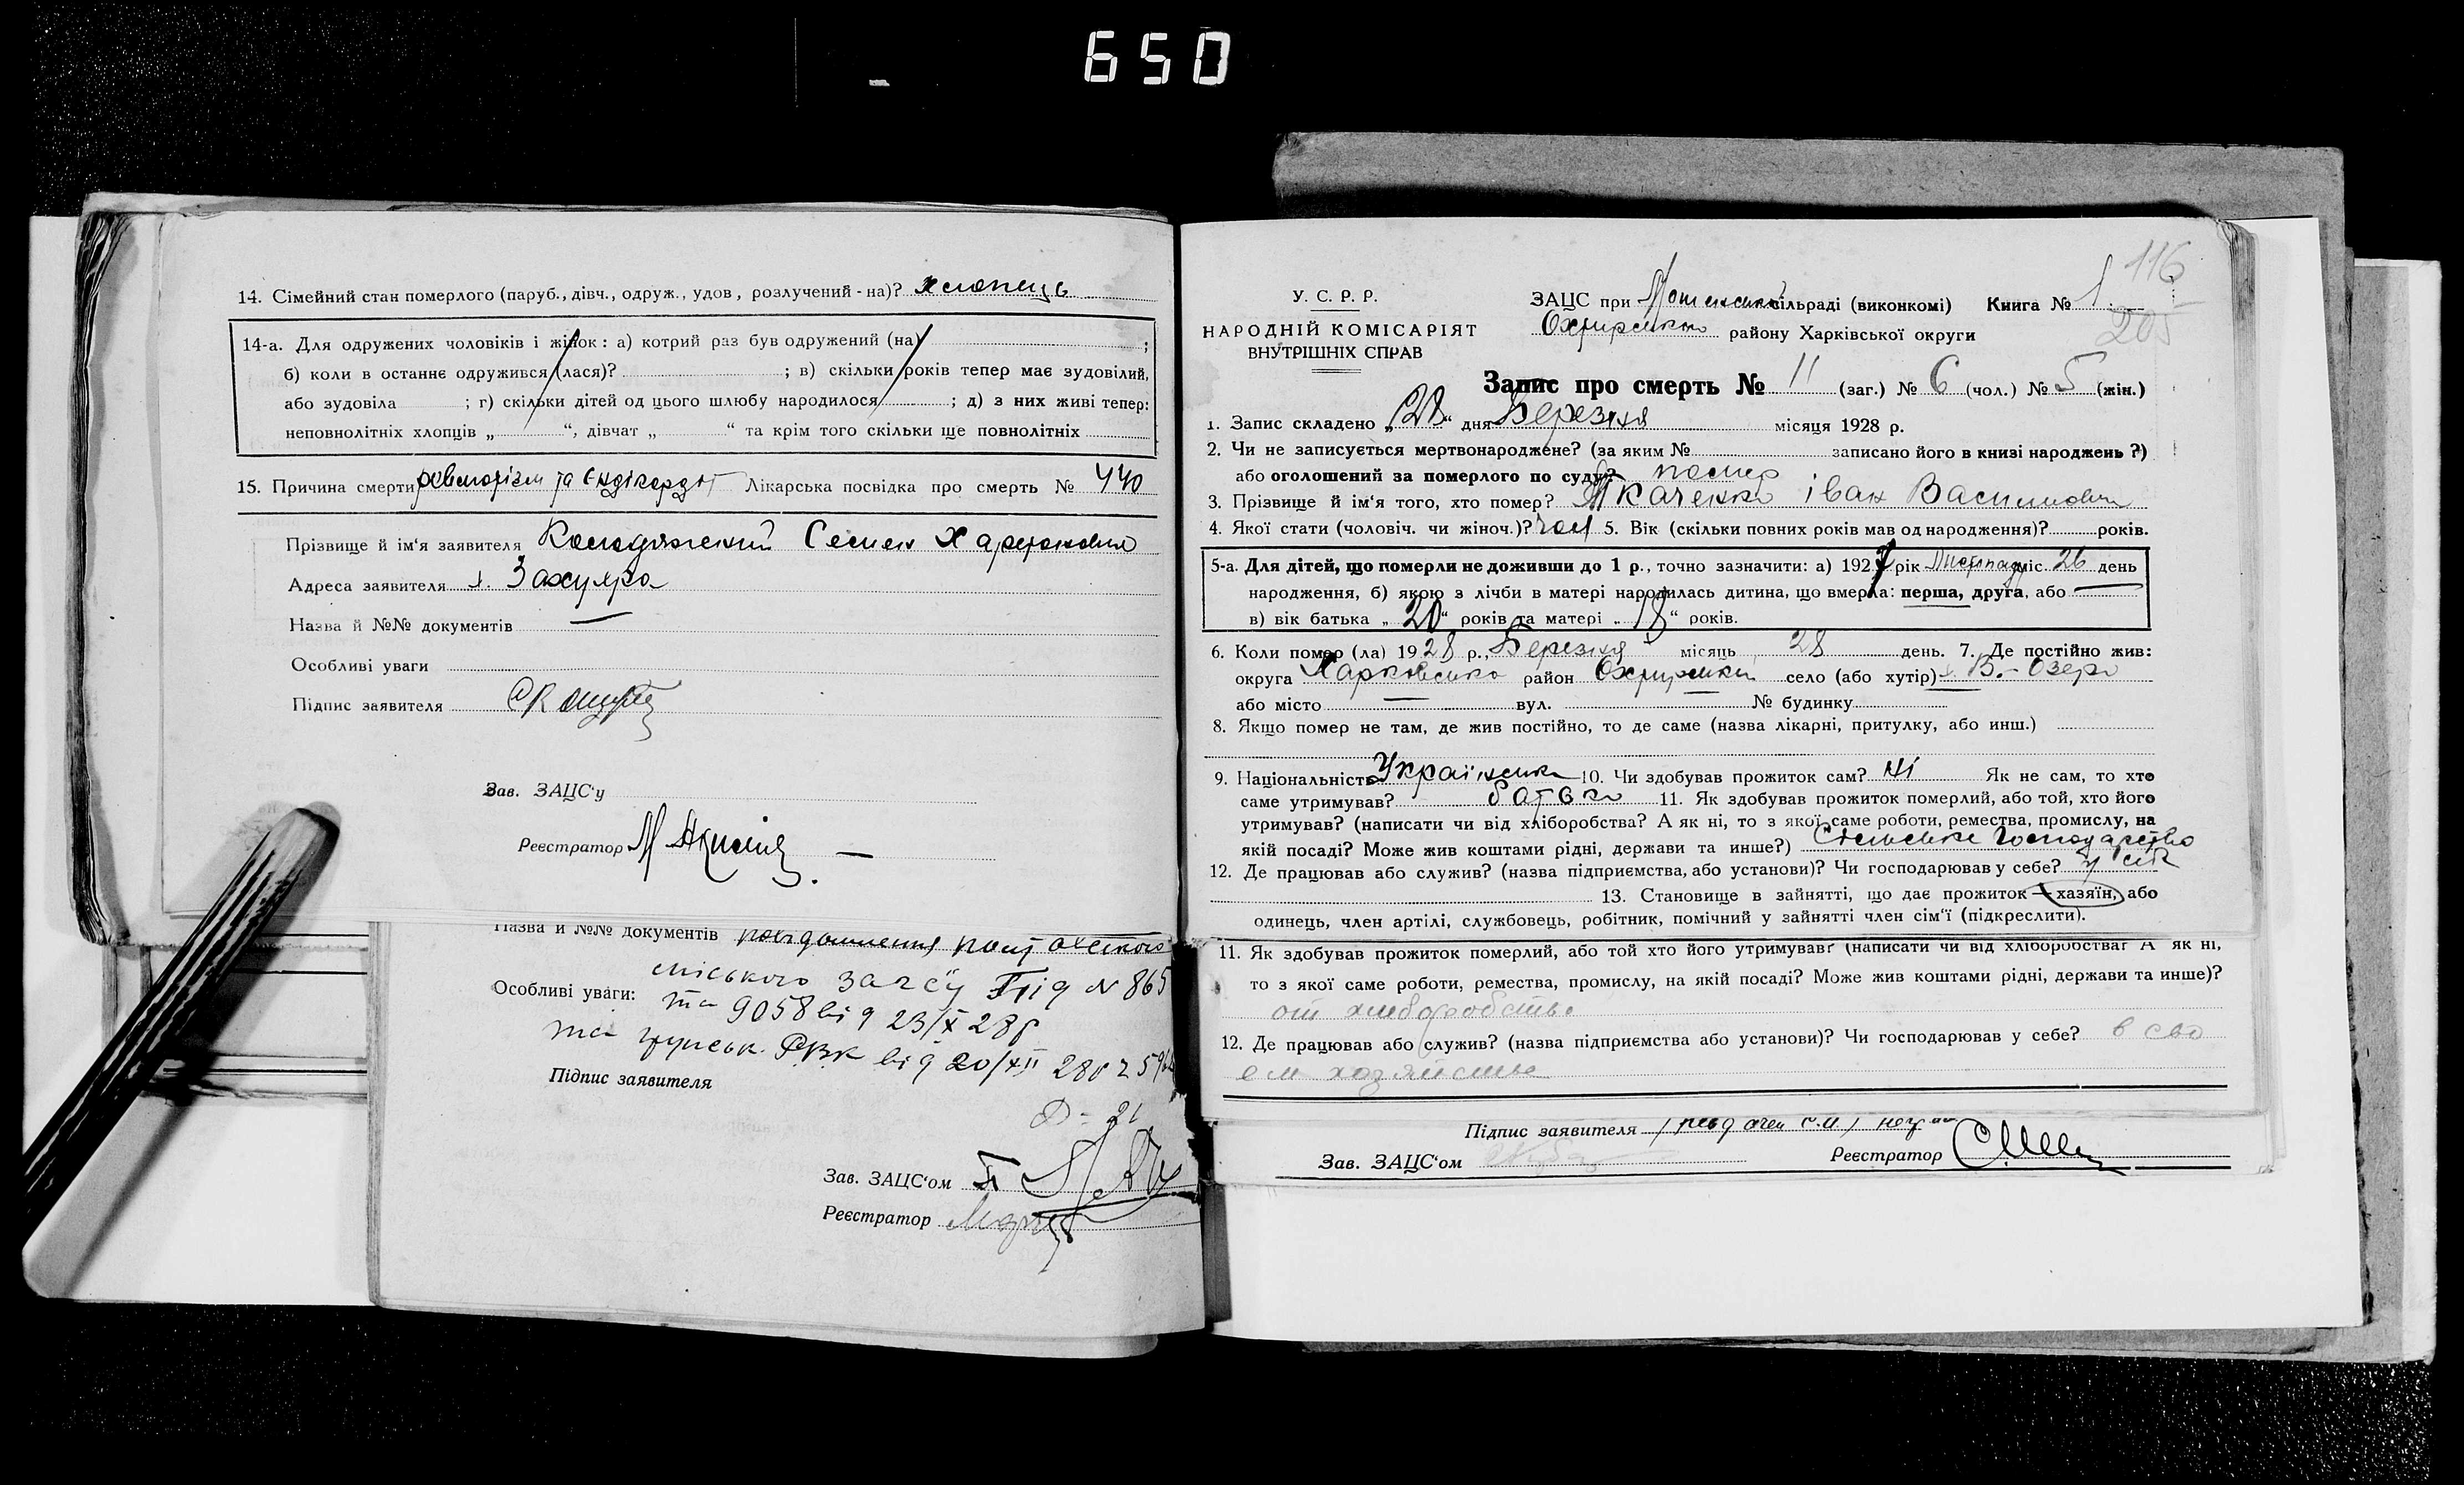 650
14. Сімейний стан померлого (паруб., дівч., одруж., удов, розлучений - на)? хлопець
14-а. Для одружених чоловіків і жінок: а) котрий раз був одружений (на) ;
б) коли в останнє одружився (лася)? ; в) скільки років тепер має зудовілий,
або зудовіла ; г) скільки дітей од цього шлюбу народилося ; д) з них живі тепер:
неповнолітніх хлопців „ “, дівчат „ “ та крім того скільки ще повнолітніх
15. Причина смерти та Лікарська посвідка про смерть № 440
Прізвище й ім'я заявителя Семен Харитонович
Адреса заявителя х.
Назва й №№ документів —
Особливі уваги
Підпис заявителя
Зав. ЗАЦС'у
Реєстратор
Назва й №№ документів повідомлення
міського загсу від № 865
Особливі уваги: та 9058 від 23/X 28р
та РВК від 20/XII 28р
Підпис заявителя
Зав. ЗАЦС'ом
Реєстратор
116
205
У. С. Р. Р.
НАРОДНІЙ КОМІСАРІЯТ
ВНУТРІШНІХ СПРАВ
ЗАЦС при сільраді (виконкомі) Книга № 1
району Харківської округи
Запис про смерть № 11 (заг.) № 6 (чол.) № 5 (жін.)
1. Запис складено „28“ дня Березня місяця 1928 р.
2. Чи не записується мертвонароджене? (за яким № записано його в книзі народжень ?)
або оголошений за померлого по суду? помер
3. Прізвище й ім'я того, хто помер? Ткаченко Іван Васильович
4. Якої стати (чоловіч. чи жіноч.)? чол 5. Вік (скільки повних років мав од народження)? років.
5-а. Для дітей, що померли не доживши до 1 р., точно зазначити: а) 1927 рік Листопад міс. 26 день
народження, б) якою з лічби в матері народилась дитина, що вмерла: перша, друга, або —
в) вік батька „ 20 “ років та матері „ 18 “ років.
6. Коли помер (ла) 1928 р., Березня місяць 28 день. 7. Де постійно жив:
округа Харківська район село (або хутір) х. В.-Озеро
або місто — вул. — № будинку
8. Якщо помер не там, де жив постійно, то де саме (назва лікарні, притулку, або инш.)
9. Національність Українська 10. Чи здобував прожиток сам? ні Як не сам, то хто
саме утримував? батько 11. Як здобував прожиток померлий, або той, хто його
утримував? (написати чи від хліборобства? А як ні, то з якої саме роботи, ремества, промислу, на
якій посаді? Може жив коштами рідні, держави та инше?) Сільське Господарство
12. Де працював або служив? (назва підприємства, або установи)? Чи господарював у себе? у себе
13. Становище в зайнятті, що дає прожиток — хазяїн, або
одинець, член артілі, службовець, робітник, помічний у зайнятті член сім'ї (підкреслити).
11. Як здобував прожиток померлий, або той хто його утримував? (написати чи від хліборобства? А як ні,
то з якої саме роботи, ремества, промислу, на якій посаді? Може жив коштами рідні, держави та инше)?
от хлеборобства
12. Де працював або служив? (назва підприємства або установи)? Чи господарював у себе? в сво
ем хозяйстве
Підпис заявителя
Зав. ЗАЦС'ом Реєстратор